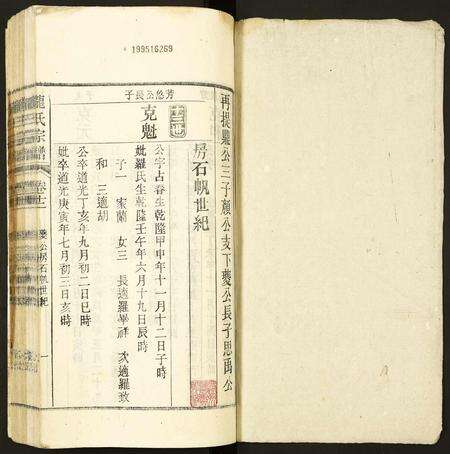 199516269
再提難公三子顏公支下夔公長子思禹公
房石帆世紀
芳悠公長子
克魁
公字占春生乾隆甲申年十一月十二日子時
妣羅氏生乾隆壬午年六月十九日辰時
子一 家蘭 女三 長適羅畢祥 次適羅致
和 三適胡
公卒道光丁亥年九月初二日巳時
妣卒道光庚寅年七月初三日亥時
龍氏宗譜
房石帆世紀
一